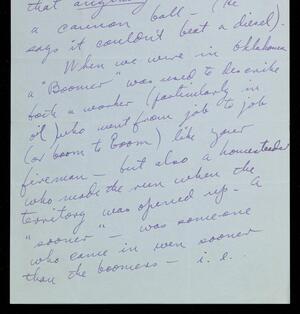 that anything
a cannon ball — (he
says it couldn't beat a diesel).
When we were in Oklahoma
a "Boomer" was used to describe
both a worker (particularly in
oil) who went from job to job
(or boom to boom) like your
fireman — but also a homesteader
who made the run when the
territory was opened up. A
"sooner" — was someone
who came in even sooner
than the boomers — i.e.